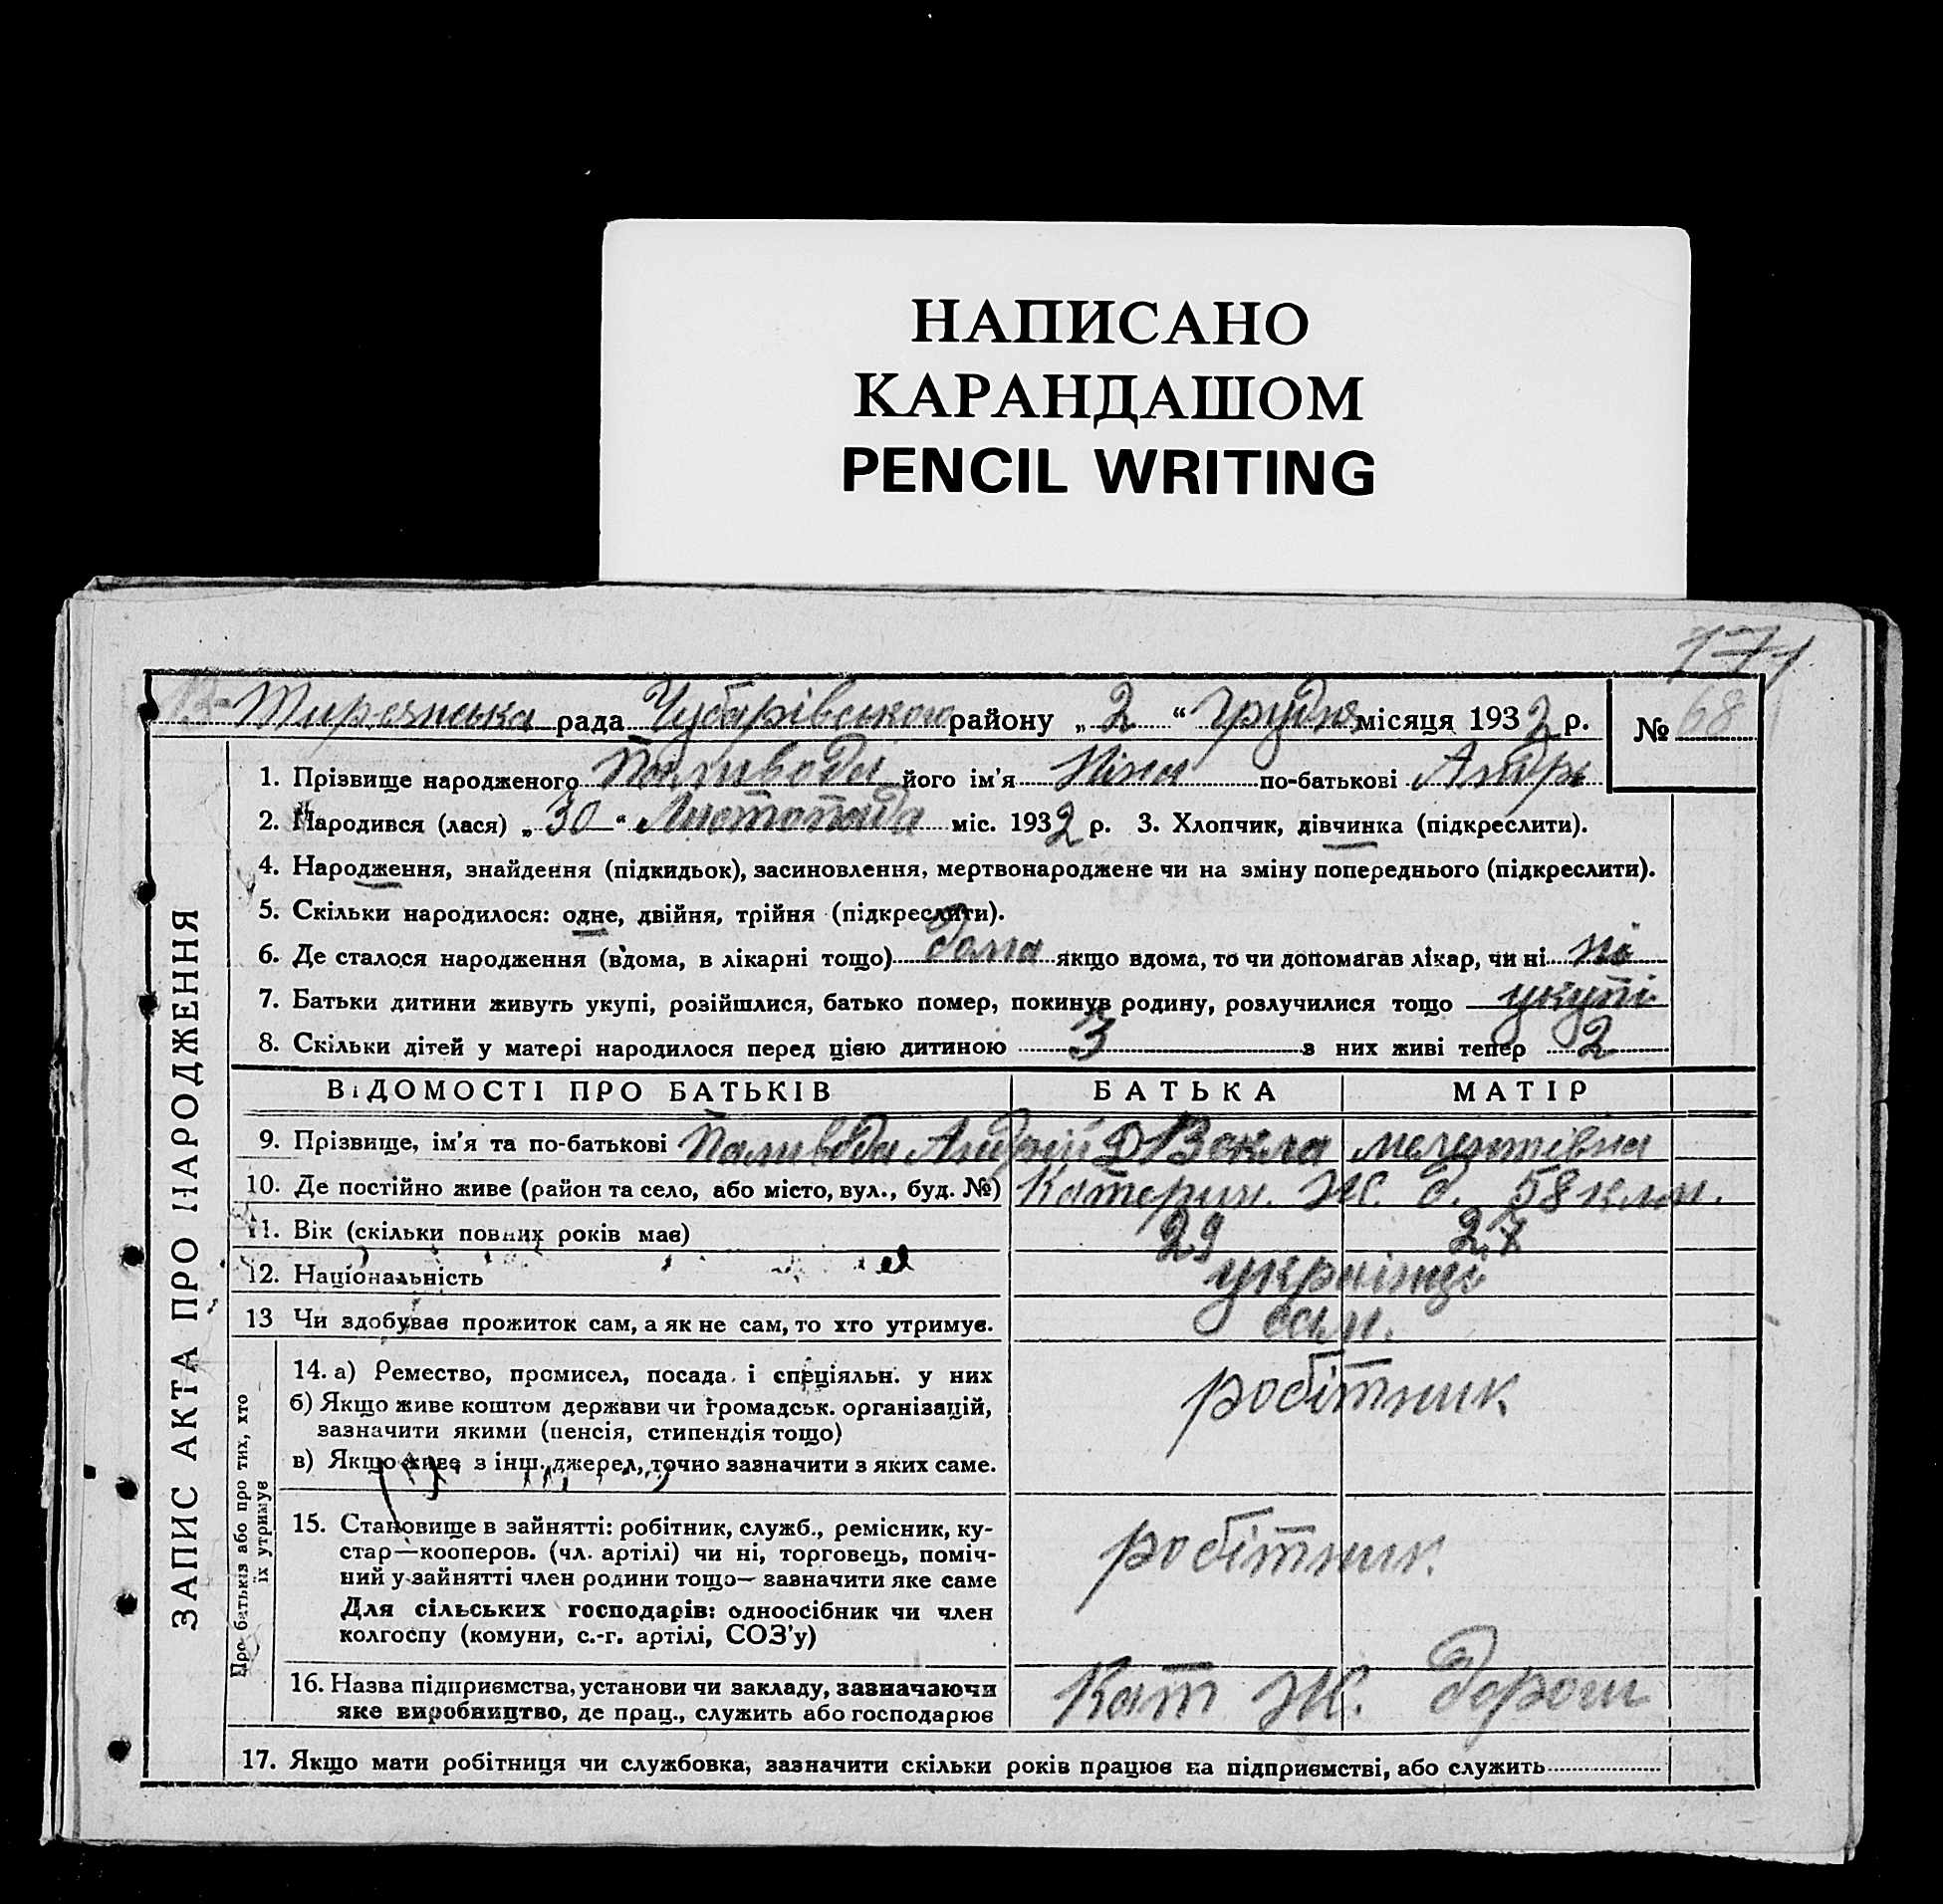 НАПИСАНО
КАРАНДАШОМ
PENCIL WRITING
171
рада Чубарівського району „ 2 “ Грудня місяця 1932 р. № 68
1. Прізвище народженого Паливода його ім'я Ніна по-батькові Андр
2. Народився (лася) „ 30 “ Листопада міс. 1932 р. 3. Хлопчик, дівчинка (підкреслити).
4. Народження, знайдення (підкидьок), засиновлення, мертвонароджене чи на зміну попереднього (підкреслити).
5. Скільки народилося: одне, двійня, трійня (підкреслити).
6. Де сталося народження (вдома, в лікарні тощо) дома якщо вдома, то чи допомагав лікар, чи ні ні
7. Батьки дитини живуть укупі, розійшлися, батько помер, покинув родину, розлучилися тощо укупі
8. Скільки дітей у матері народилося перед цією дитиною 3 з них живі тепер 2
ВІДОМОСТІ ПРО БАТЬКІВ БАТЬКА МАТІР
9. Прізвище, ім'я та по-батькові Паливода Андрій Векла
10. Де постійно живе (район та село, або місто, вул., буд. №) Катерин. Ж. д. 58 клм.
11. Вік (скільки повних років має) 29 27
12. Національність українці
13 Чи здобуває прожиток сам, а як не сам, то хто утримує. сам.
14. а) Ремество, промисел, посада і спеціяльн. у них робітник
б) Якщо живе коштом держави чи громадськ. організацій,
зазначити якими (пенсія, стипендія тощо)
в) Якщо живе з інш. джерел, точно зазначити з яких саме.
15. Становище в зайнятті: робітник, служб., ремісник, ку-
стар—кооперов. (чл. артілі) чи ні, торговець, поміч-
ний у зайнятті член родини тощо— зазначити яке саме робітник.
Для сільських господарів: одноосібник чи член
колгоспу (комуни, с.-г. артілі, СОЗ'у)
16. Назва підприємства, установи чи закладу, зазначаючи
яке виробництво, де прац., служить або господарює Кат Ж. дорош
17. Якщо мати робітниця чи службовка, зазначити скільки років працює на підприємстві, або служить
ЗАПИС АКТА ПРО НАРОДЖЕННЯ
Про батьків або про тих, хто
їх утримує